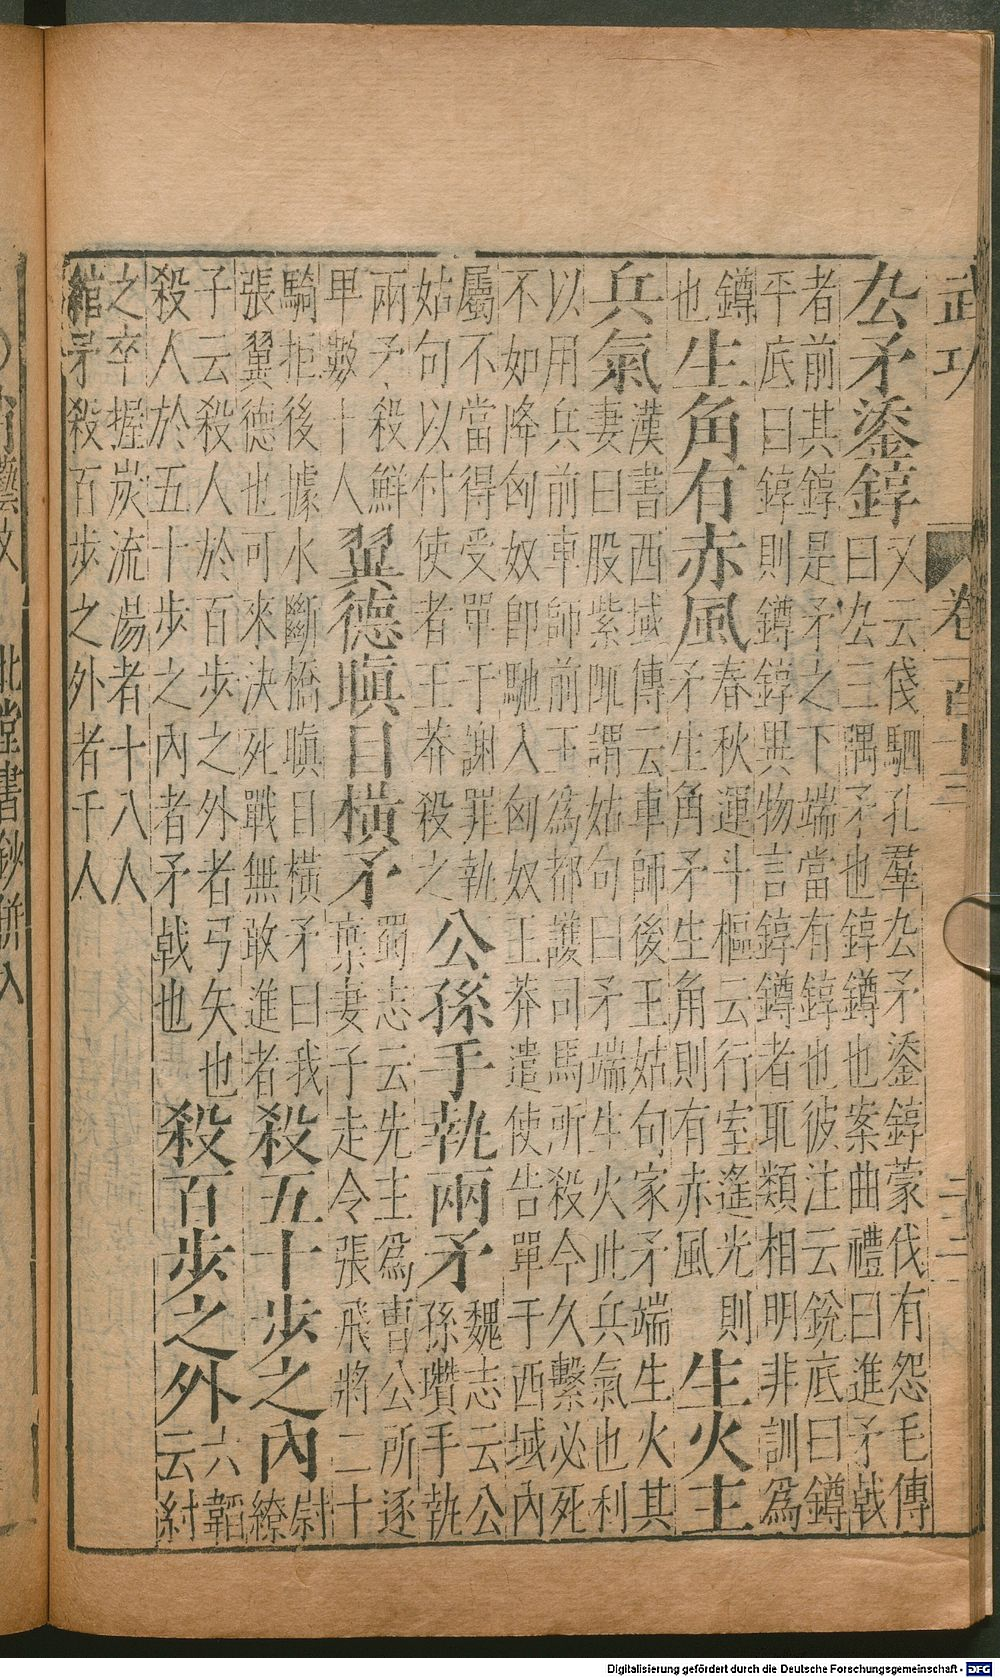 武功
卷一百十三
厹矛鋈錞
又云俴駟孔羣厹矛鋈錞蒙伐有怨毛傳
曰厹三隅矛也錞鐏也案曲禮曰進矛戟
者前其錞是矛之下端當有錞也彼注云銳底曰鐏
平底曰錞則鐏錞異物言錞鐏者耴類相明非訓爲
鐏
也
生角有赤風
春秋運斗樞云行室遙光則
矛生角矛生角則有赤風
生火主
兵氣
漢書西域傳云車師後王姑句家矛端生火其
妻曰股紫陬謂姑句曰矛端生火此兵氣也利
以用兵前車師前王爲都護司馬所殺今久繫必死
不如降匈奴卽馳入匈奴王莽遣使告單于西域內
屬不當得受單于謝罪執
姑句以付使者王莽殺之
公孫手執兩矛
魏志云公
孫瓚手執
兩矛殺鮮
甲數十人
翼德瞋目橫矛
蜀志云先主爲曹公所逐
葉妻子走令張飛將二十
騎拒後據水斷橋瞋目橫矛曰我
張翼德也可來決死戰無敢進者
殺五十步之內
尉
繚
子云殺人於百步之外者弓矢也
殺人於五十步之內者矛戟也
殺百步之外
六韜
云紂
之卒握炭流湯者十八人
綰矛殺百步之外者千人
Digitalisierung gefördert durch die Deutsche Forschungsgemeinschaft - DFG